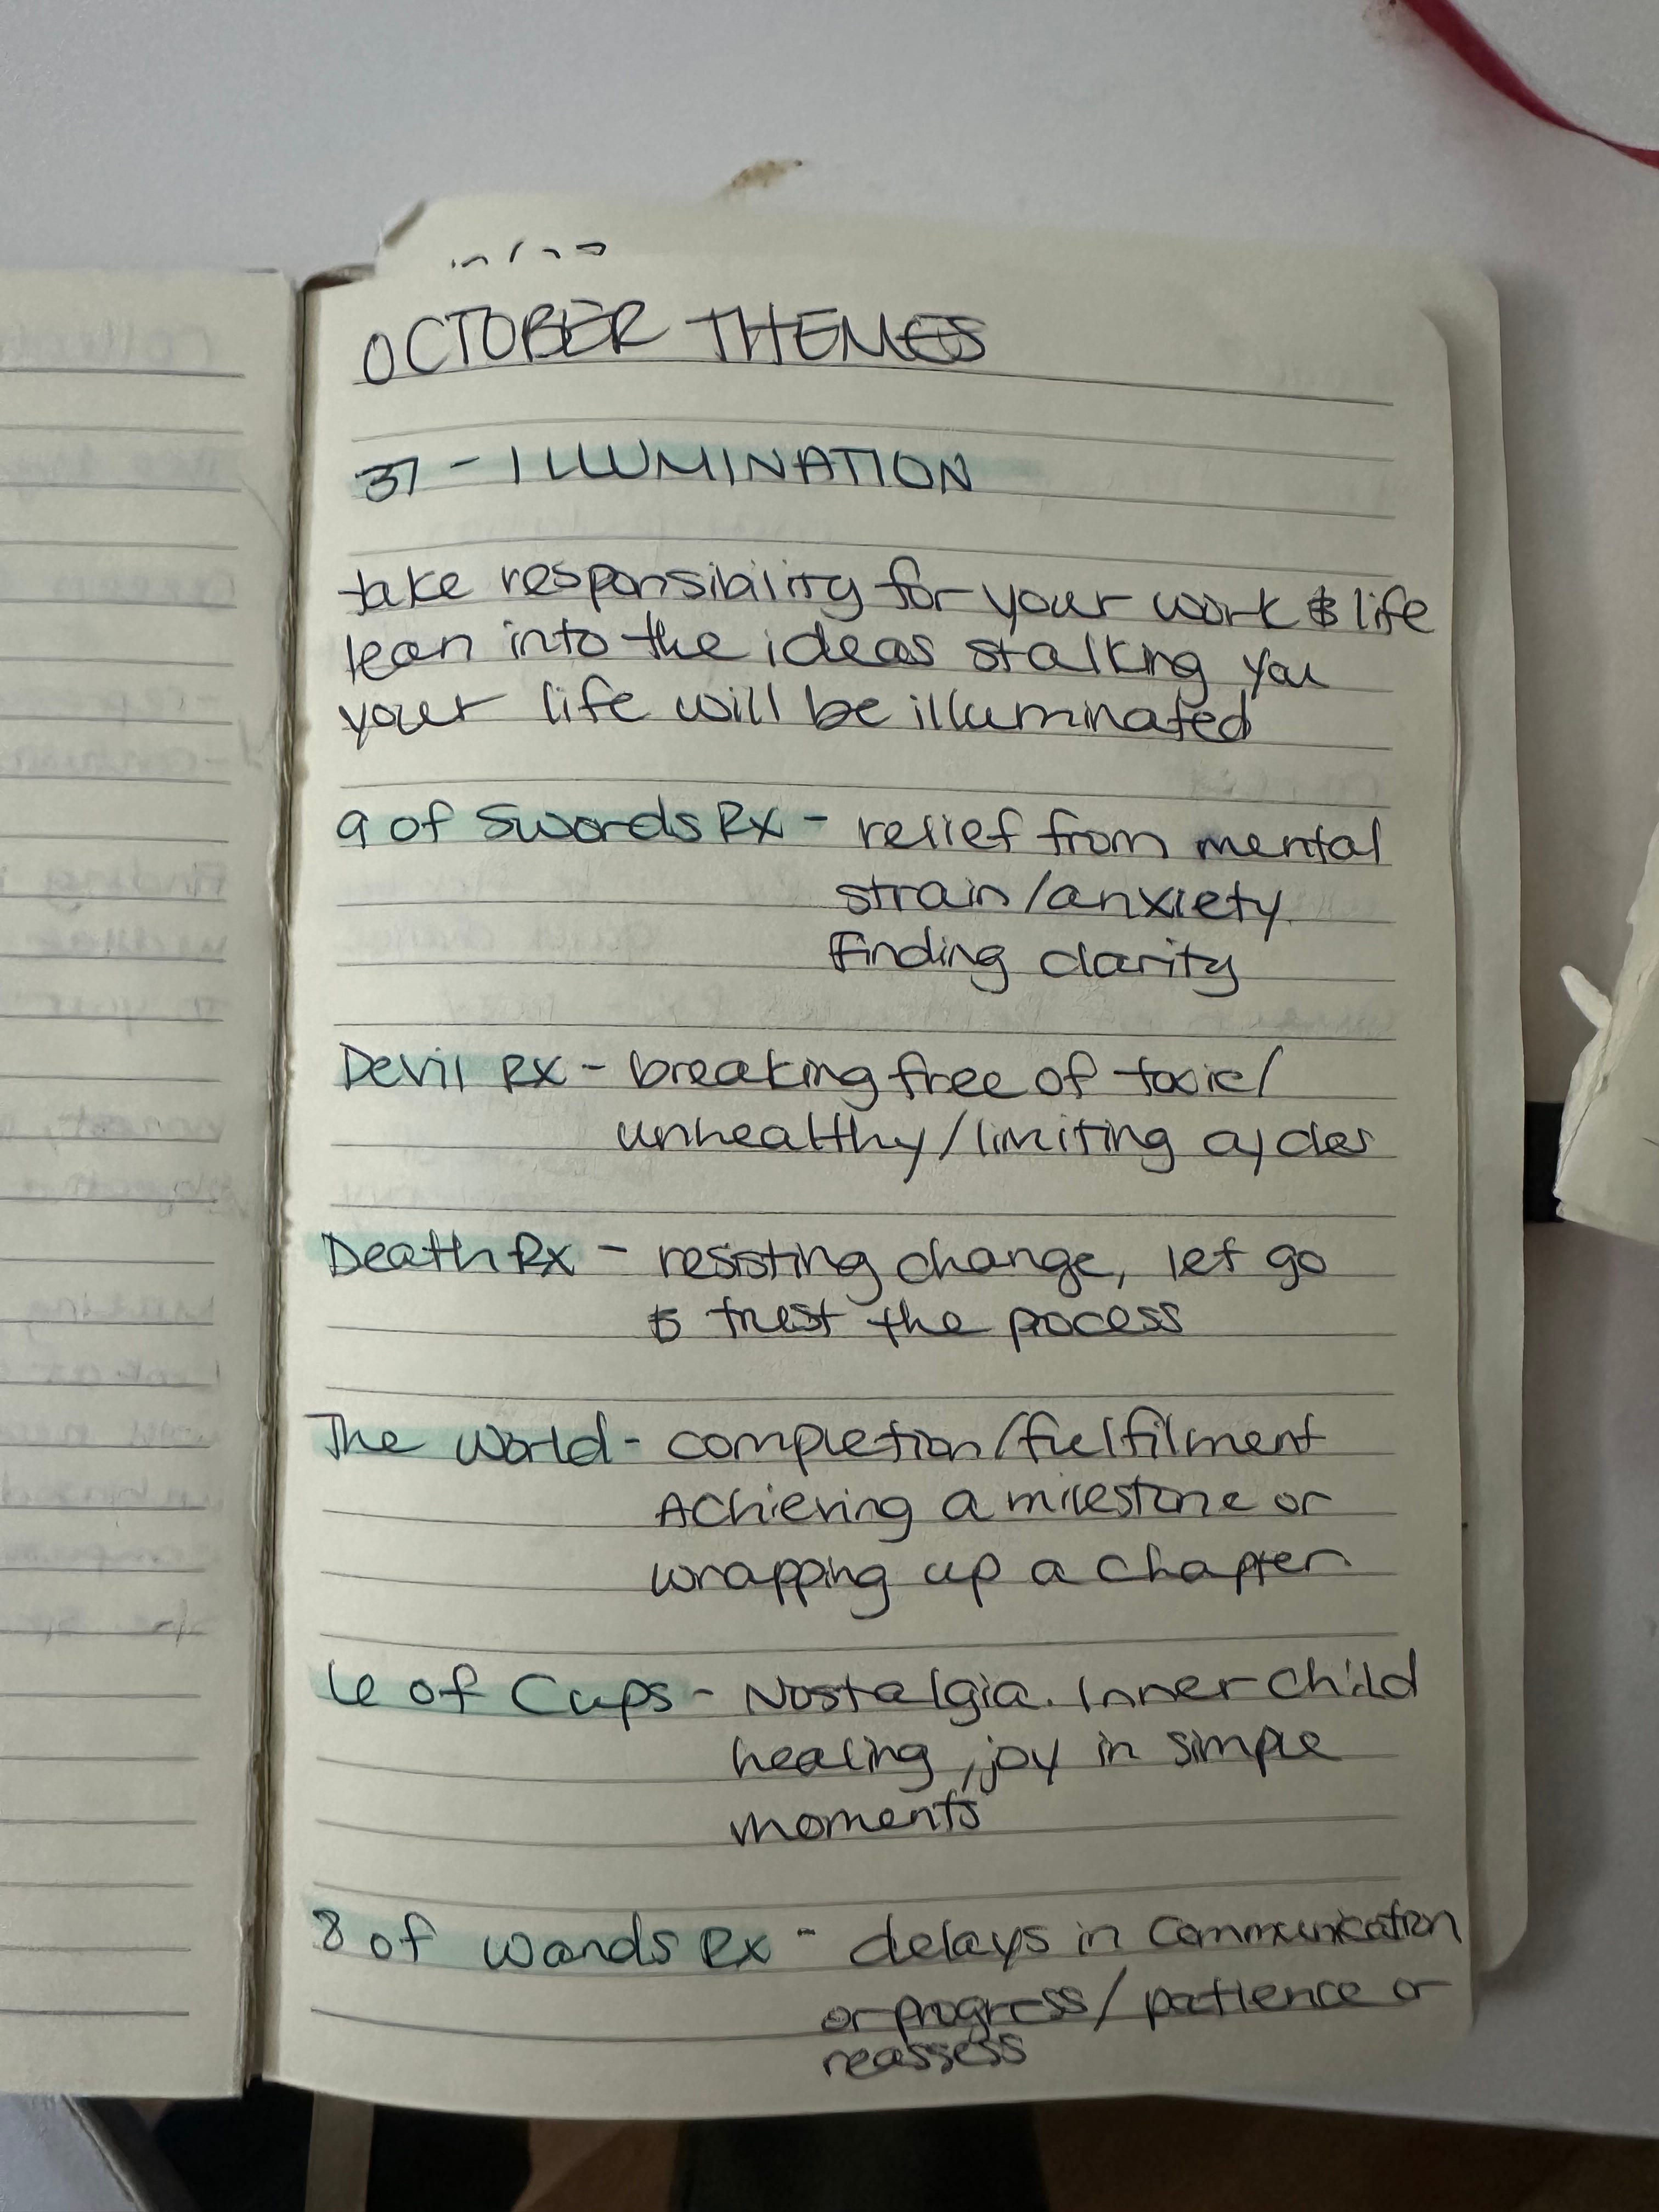 OCTOBER THEMES
37 - ILLUMINATION
take responsibility for your work & life
lean into the ideas stalking you
your life will be illuminated
9 of Swords Rx - relief from mental
strain/anxiety
Finding clarity
Devil Rx - breaking free of toxic/
unhealthy/limiting cycles
Death Rx - resisting change, let go
& trust the process
The World - completion/fulfilment
Achieving a milestone or
wrapping up a chapter
6 of Cups - Nostalgia. Inner child
healing, joy in simple
moments
8 of Wands Rx - delays in communication
or progress/patience or
reassess